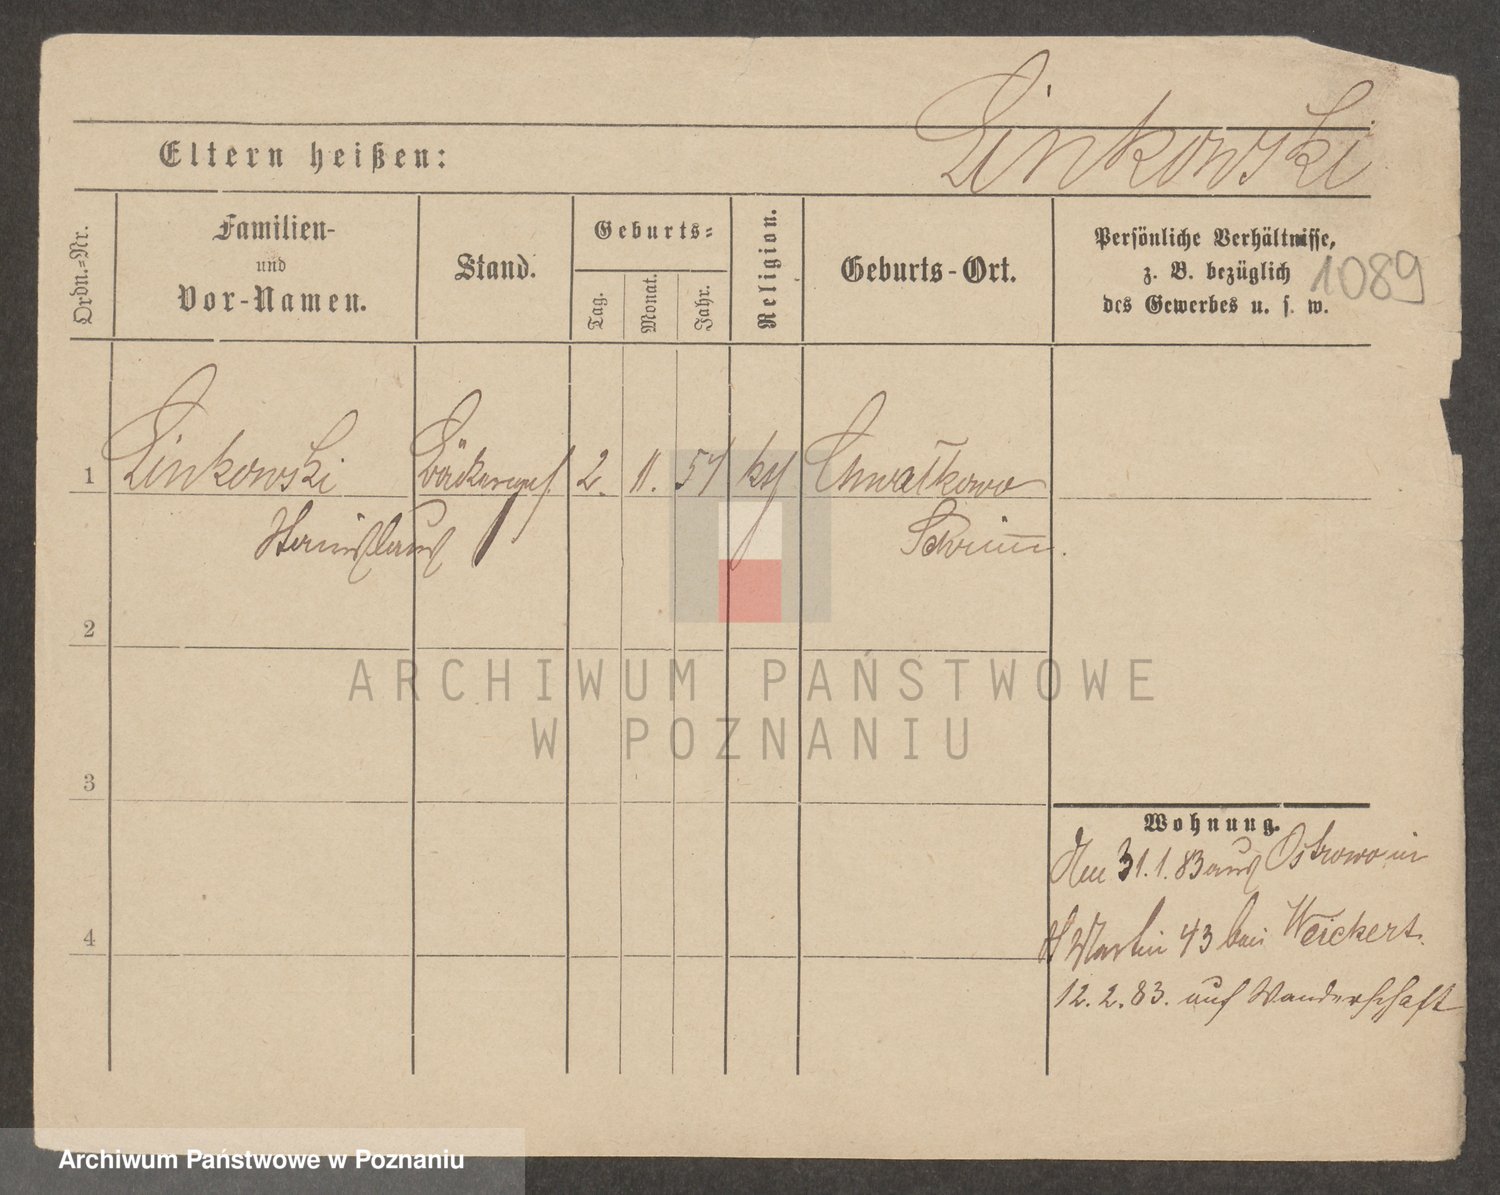 Linkowski
Eltern heißen:
Ordn.-Nr.
Familien-
und
Vor-Namen.
Stand.
Geburts-
Tag.
Monat.
Jahr.
Religion.
Geburts-Ort.
Persönliche Verhältnisse,
z. B. bezüglich
des Gewerbes u. s. w.
1089
1 Linkowski Bäckerges. 2. 11. 57 kth Chwalkowo
Stanislaus Schrimm.
2
3
4
Wohnung.
Am 31.1.83 aus Ostrowo in
St Martin 43 bei Weickert.
12.2.83. auf Wanderschaft
ARCHIWUM PAŃSTWOWE
W POZNANIU
Archiwum Państwowe w Poznaniu